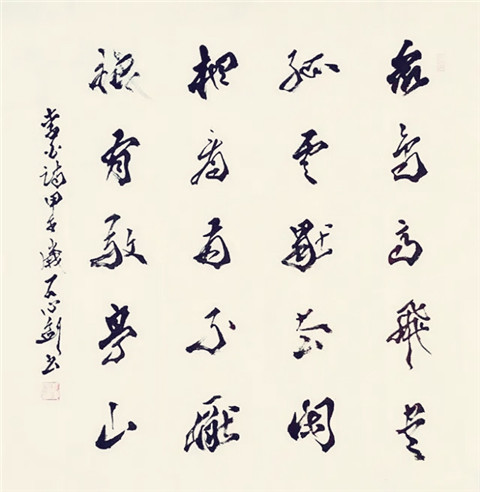 眾鳥高飛盡
孤雲獨去閑
相看兩不厭
祗有敬亭山
李白詩甲午歲書